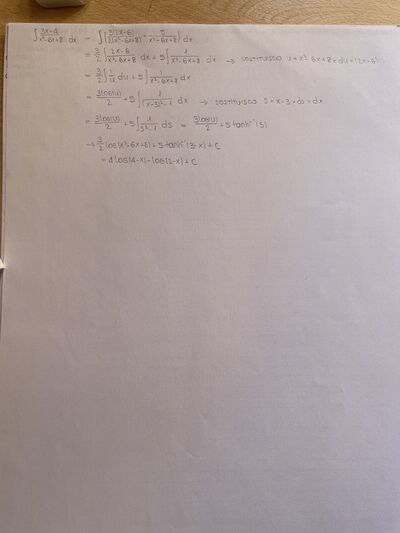 ∫ (3x-4)/(x²-6x+8) dx = ∫ (3(2x-6)/(2(x²-6x+8)) + 5/(x²-6x+8)) dx
= 3/2 ∫ (2x-6)/(x²-6x+8) dx + 5 ∫ 1/(x²-6x+8) dx → sostituisco u=x²-6x+8 du=(2x-6)
= 3/2 ∫ 1/u du + 5 ∫ 1/(x²-6x+8) dx
= 3log(u)/2 + 5 ∫ 1/((x-3)²-1) dx → sostituisco s=x-3 ds=dx
= 3log(u)/2 + 5 ∫ 1/(s²-1) ds = 3log(u)/2 + 5 tanh⁻¹(s)
→ 3/2 log(x²-6x+8) + 5 tanh⁻¹(3-x) + c
= 4 log(4-x) - log(2-x) + c